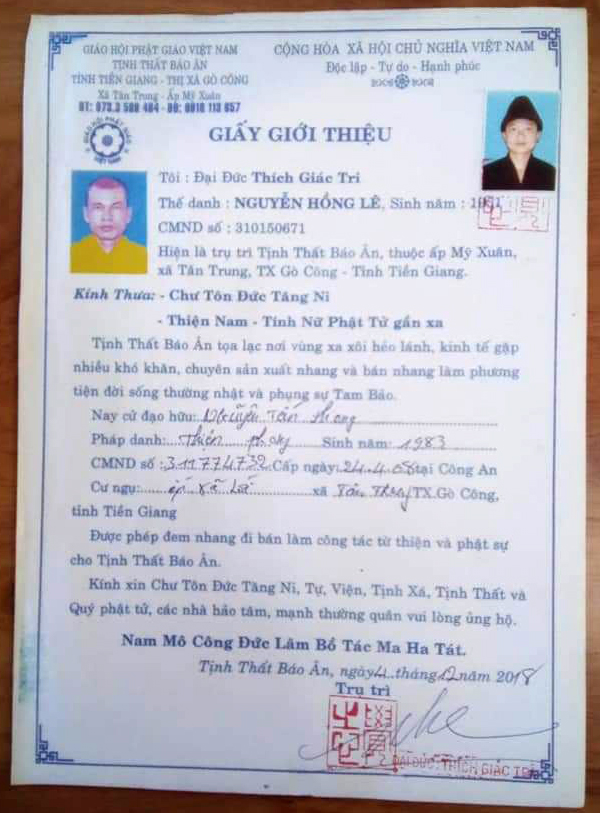 GIÁO HỘI PHẬT GIÁO VIỆT NAM
TỊNH THẤT BẢO ÂN
TỈNH TIỀN GIANG - THỊ XÃ GÒ CÔNG
Xã Tân Trung - Ấp Mỹ Xuân
CỘNG HÒA XÃ HỘI CHỦ NGHĨA VIỆT NAM
Độc lập - Tự do - Hạnh phúc
GIẤY GIỚI THIỆU
Tôi : Đại Đức Thích Giác Trí
Thế danh : NGUYỄN HỒNG LÊ, Sinh năm :
CMND số : 310150671
Hiện là trụ trì Tịnh Thất Bảo Ân, thuộc ấp Mỹ Xuân,
xã Tân Trung, TX Gò Công - Tỉnh Tiền Giang.
Kính Thưa: - Chư Tôn Đức Tăng Ni
- Thiện Nam - Tính Nữ Phật Tử gần xa
Tịnh Thất Bảo Ân tọa lạc nơi vùng xa xôi hẻo lánh, kinh tế gặp
nhiều khó khăn, chuyên sản xuất nhang và bán nhang làm phương
tiện đời sống thường nhật và phụng sự Tam Bảo.
Nay cử đạo hữu: Nguyễn Tấn phong
Pháp danh: Thiện phong Sinh năm: 1983
CMND số : 311774732 Cấp ngày 24.4.08 tại Công An
Cư ngụ: xã TX.Gò Công,
tỉnh Tiền Giang
Được phép đem nhang đi bán làm công tác từ thiện và phật sự
cho Tịnh Thất Bảo Ân.
Kính xin Chư Tôn Đức Tăng Ni, Tự, Viện, Tịnh Xá, Tịnh Thất và
Quý phật tử, các nhà hảo tâm, mạnh thường quân vui lòng ủng hộ.
Nam Mô Công Đức Lâm Bồ Tác Ma Ha Tát.
Tịnh Thất Bảo Ân, ngày 4 tháng 12 năm 2018
Trụ trì
ĐẠI ĐỨC: THÍCH GIÁC TRÍ